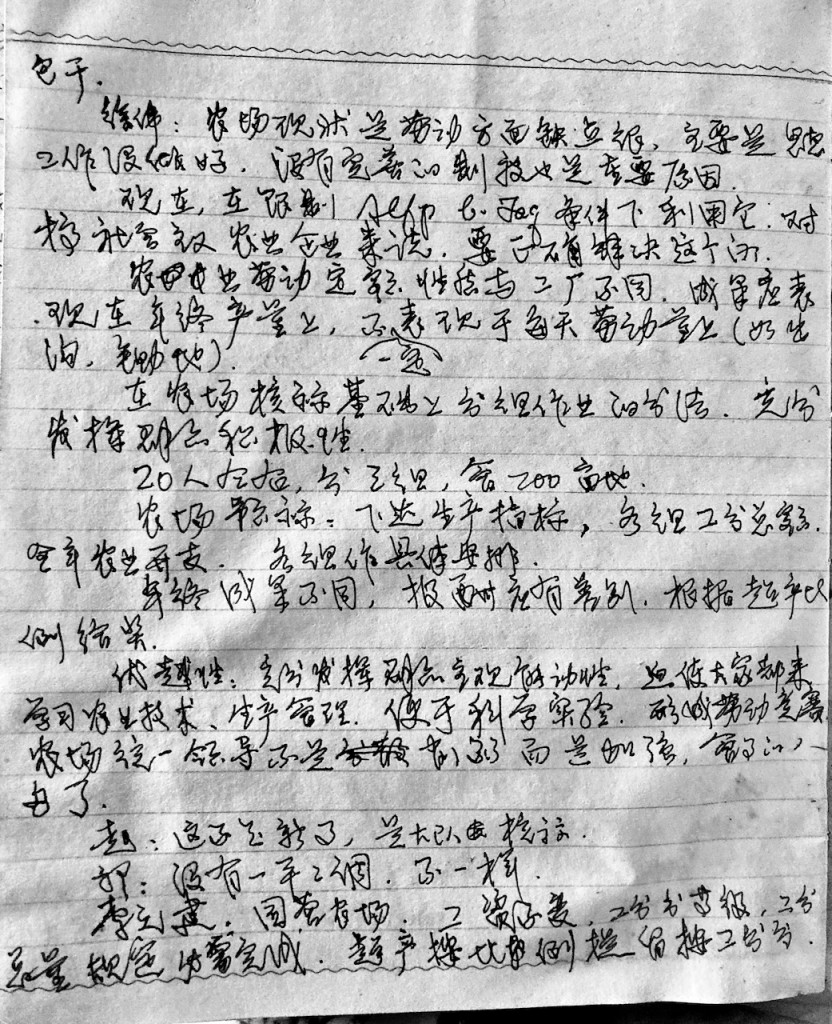 包干.
徐伟: 农场现状是劳动方面缺点很, 主要是思想
工作没做好. 没有完善的制度也是重要原因.
现在, 在限制 条件下利用它. 对
社会主义农业企业来说. 要解决这个问.
农业劳动定额性质与工厂不同. 成果应表
现在年终产量上, 不表现于每天劳动量上(如
一定
在农场核算基础上分组作业的方法. 充分
发挥群众积极性.
20人左右, 分三组, 管200亩地.
农场: 下达生产指标, 各组工分总额.
全年农业开支. 各组作具体安排.
年终成果不同, 报酬应有差别. 根据超产比
例给奖.
优越性: 充分发挥群众主观能动性. 迫使大家都来
学习农业技术、生产管理. 便于科学实验. 形成劳动竞赛
农场统一领导不是削弱而是加强, 管了的人
少了.
赵: 这不是新了, 是大队核算.
郭: 没有一年二个. 不一样.
李 . 国营农场. 工资不变. 工分分等级, 工分
总量 完成. 超产按比例 工分分.